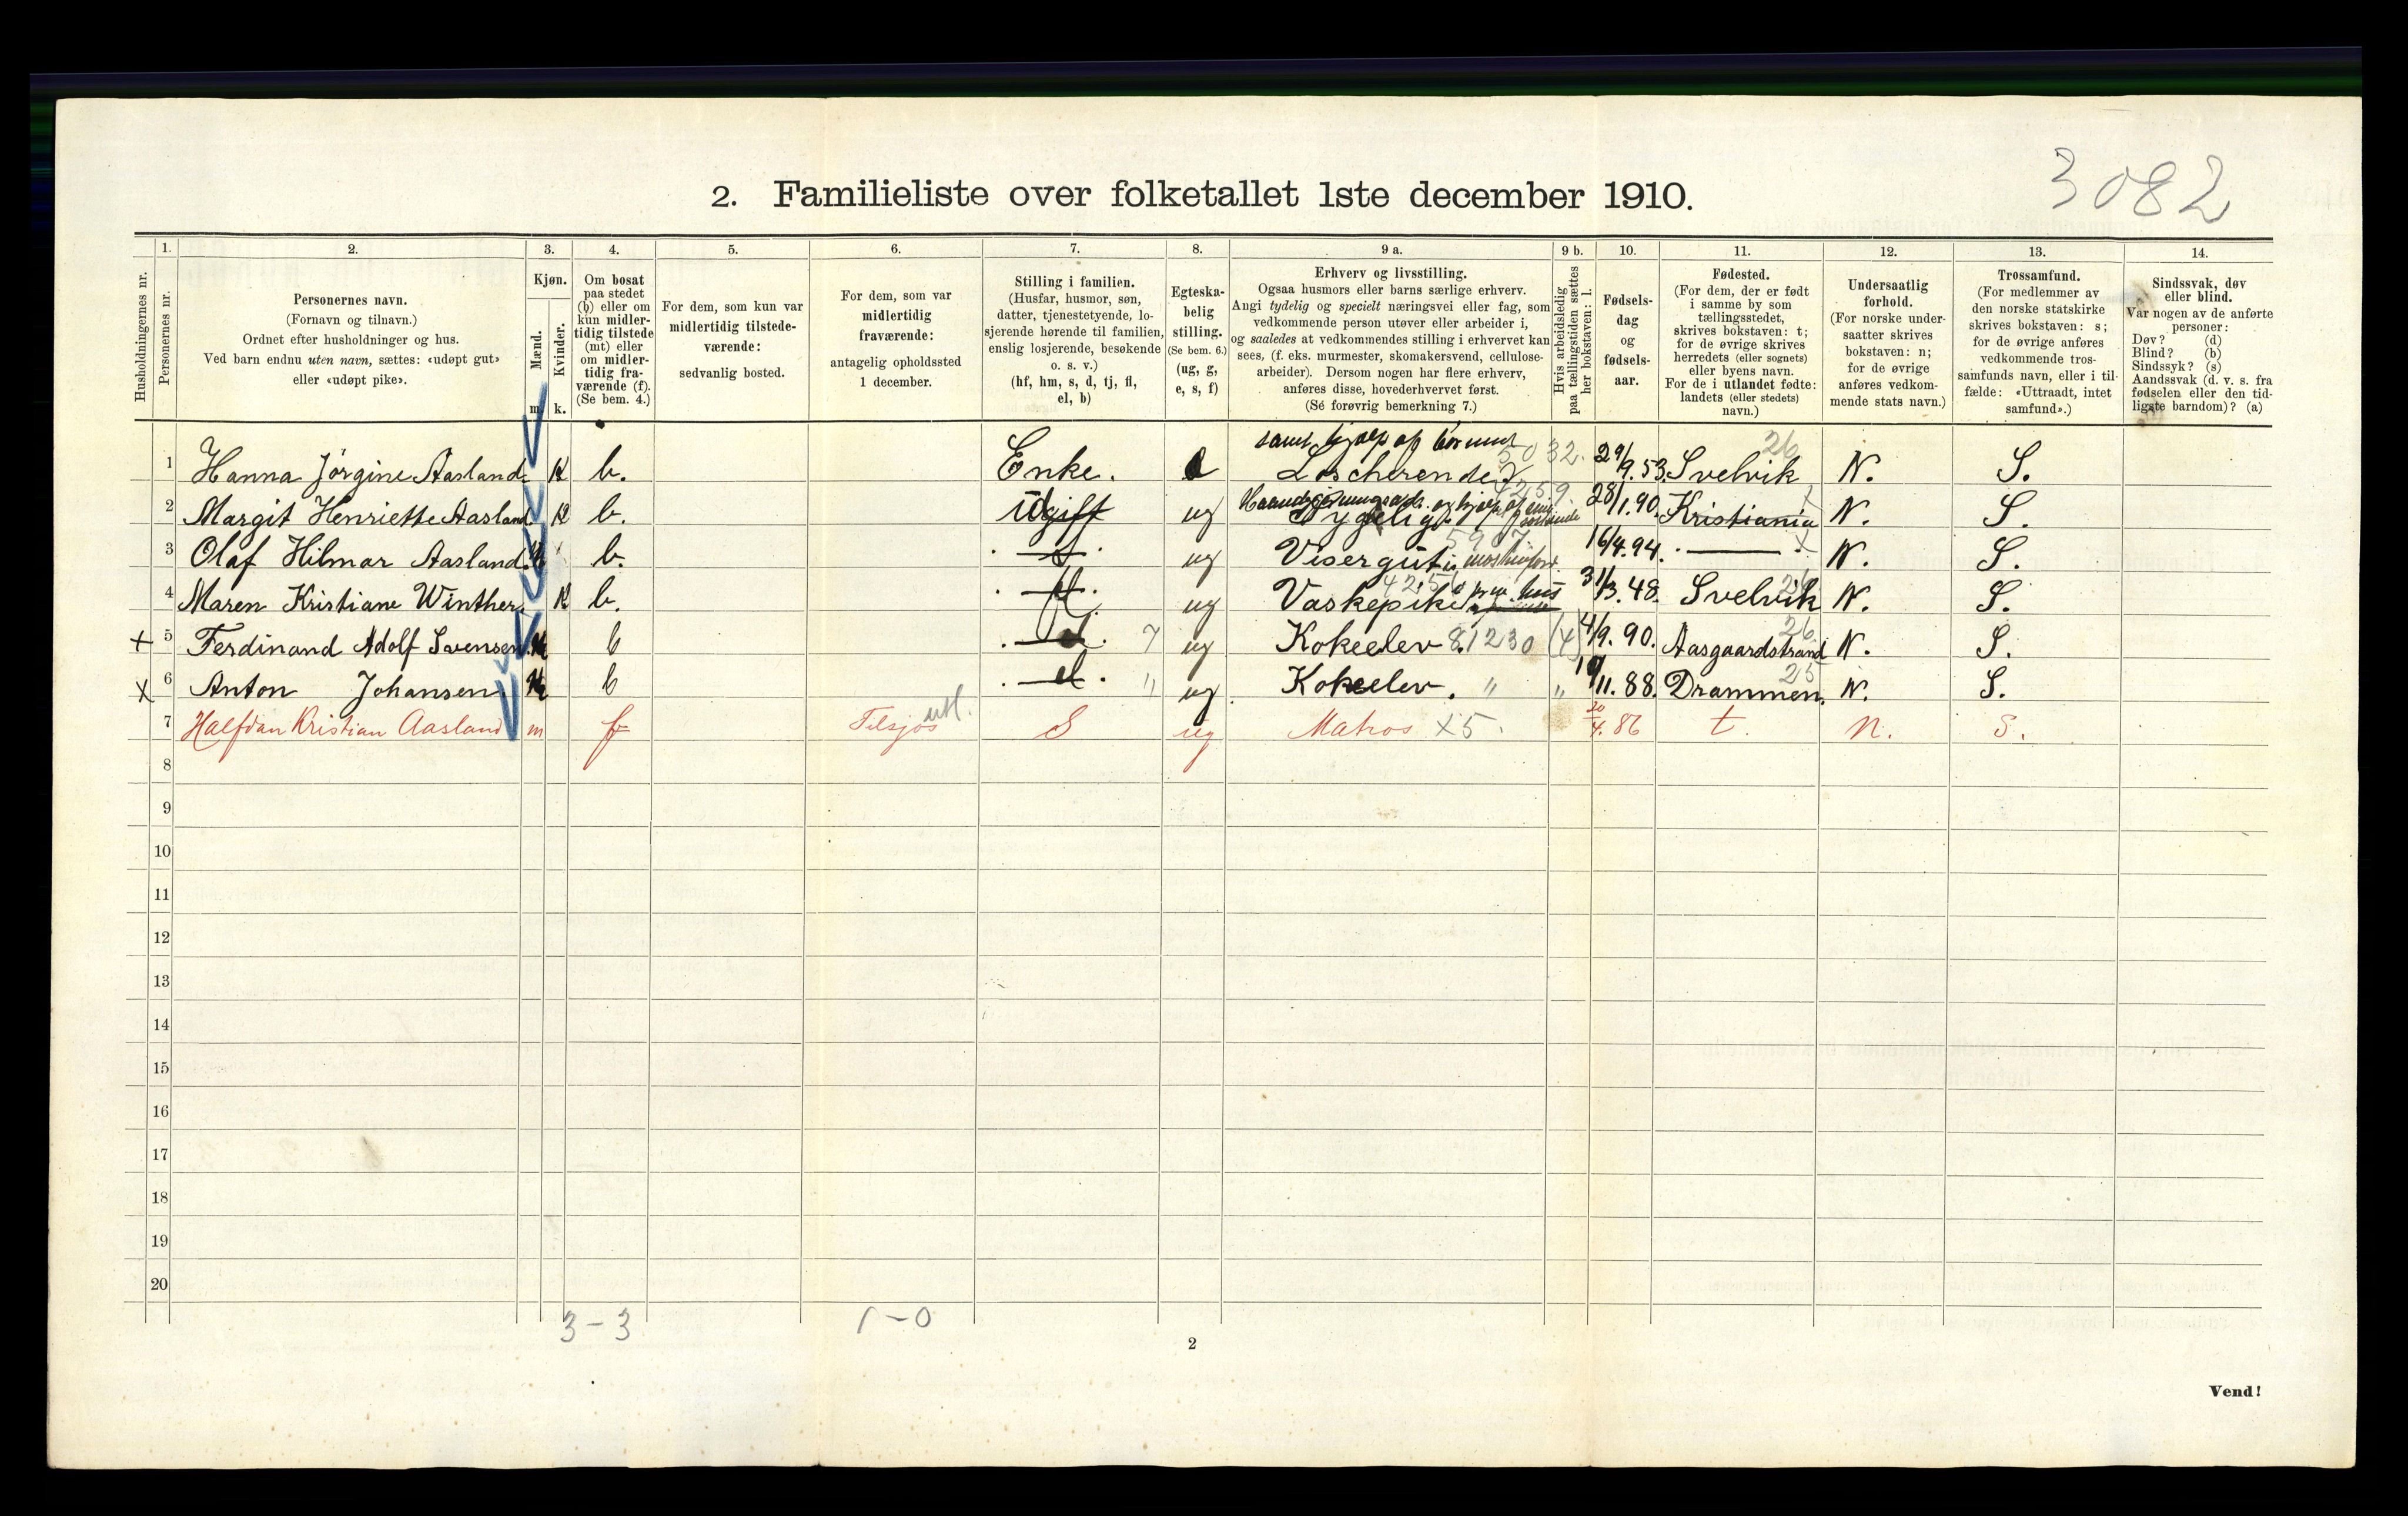 3082
2. Familieliste over folketallet 1ste december 1910.
Husholdningernes nr.
1.
Personernes nr.
2.
Personernes navn.
(Fornavn og tilnavn.)
Ordnet efter husholdninger og hus.
Ved barn endnu uten navn, sættes: «udøpt gut»
eller «udøpt pike».
3.
Kjøn.
Mænd.
Kvinder.
m.
k.
4.
Om bosat
paa stedet
(b) eller om
kun midler-
tidig tilstede
(mt) eller
om midler-
tidig fra-
værende (f).
(Se bem. 4.)
5.
For dem, som kun var
midlertidig tilstede-
værende:
sedvanlig bosted.
6.
For dem, som var
midlertidig
fraværende:
antagelig opholdssted
1 december.
7.
Stilling i familien.
(Husfar, husmor, søn,
datter, tjenestetyende, lo-
sjerende hørende til familien,
enslig losjerende, besøkende
o. s. v.)
(hf, hm, s, d, tj, fl,
el, b)
8.
Egteska-
belig
stilling.
(Se bem. 6.)
(ug, g,
e, s, f)
9 a.
Erhverv og livsstilling.
Ogsaa husmors eller barns særlige erhverv.
Angi tydelig og specielt næringsvei eller fag, som
vedkommende person utøver eller arbeider i,
og saaledes at vedkommendes stilling i erhvervet kan
sees, (f. eks. murmester, skomakersvend, cellulose-
arbeider). Dersom nogen har flere erhverv,
anføres disse, hovederhvervet først.
(Se forøvrig bemerkning 7.)
9 b.
Hvis arbeidsledig
paa tællingstiden sættes
her bokstaven: l.
10.
Fødsels-
dag
og
fødsels-
aar.
11.
Fødested.
(For dem, der er født
i samme by som
tællingsstedet,
skrives bokstaven: t;
for de øvrige skrives
herredets (eller sognets)
eller byens navn.
For de i utlandet fødte:
landets (eller stedets)
navn.)
12.
Undersaatlig
forhold.
(For norske under-
saatter skrives
bokstaven: n;
for de øvrige
anføres vedkom-
mende stats navn.)
13.
Trossamfund.
(For medlemmer av
den norske statskirke
skrives bokstaven: s;
for de øvrige anføres
vedkommende tros-
samfunds navn, eller i til-
fælde: «Uttraadt, intet
samfund».)
14.
Sindssvak, døv
eller blind.
Var nogen av de anførte
personer:
Døv? (d)
Blind? (b)
Sindssyk? (s)
Aandssvak (d. v. s. fra
fødselen eller den tid-
ligste barndom)? (a)
samt hjælp af
1 Hanna Jörgine Aasland. K b. Enke. e 5032. 29/9.53. Svelvik 26 N. S.
2 Margit Henriette Aasland. K b. Ugift ug 4259. 28/1.90. Kristiania N. S.
3 Olaf Hilmar Aasland. b. s ug Visergut 16/4.94. — N. S.
4 Maren Kristiane Winther. K b. fl. ug Vaskepike priv. hus 31/3.48. Svelvik N. S.
+ 5 Ferdinand Adolf Svensen. M b el. 7 ug Kokeelev 81230 (4) 4/9.90. Aasgaardstrand 26 N. S.
x 6 Anton Johansen M b el. " ug Kokeelev. " " 11.88. Drammen. 25 N. S.
7 Halfdan Kristian Aasland m f Tilsjøs utl. S ug Matros x5. 20/4.86 t. n. S.
8
9
10
11
12
13
14
15
16
17
18
19
20
3-3
1-0
2
Vend!